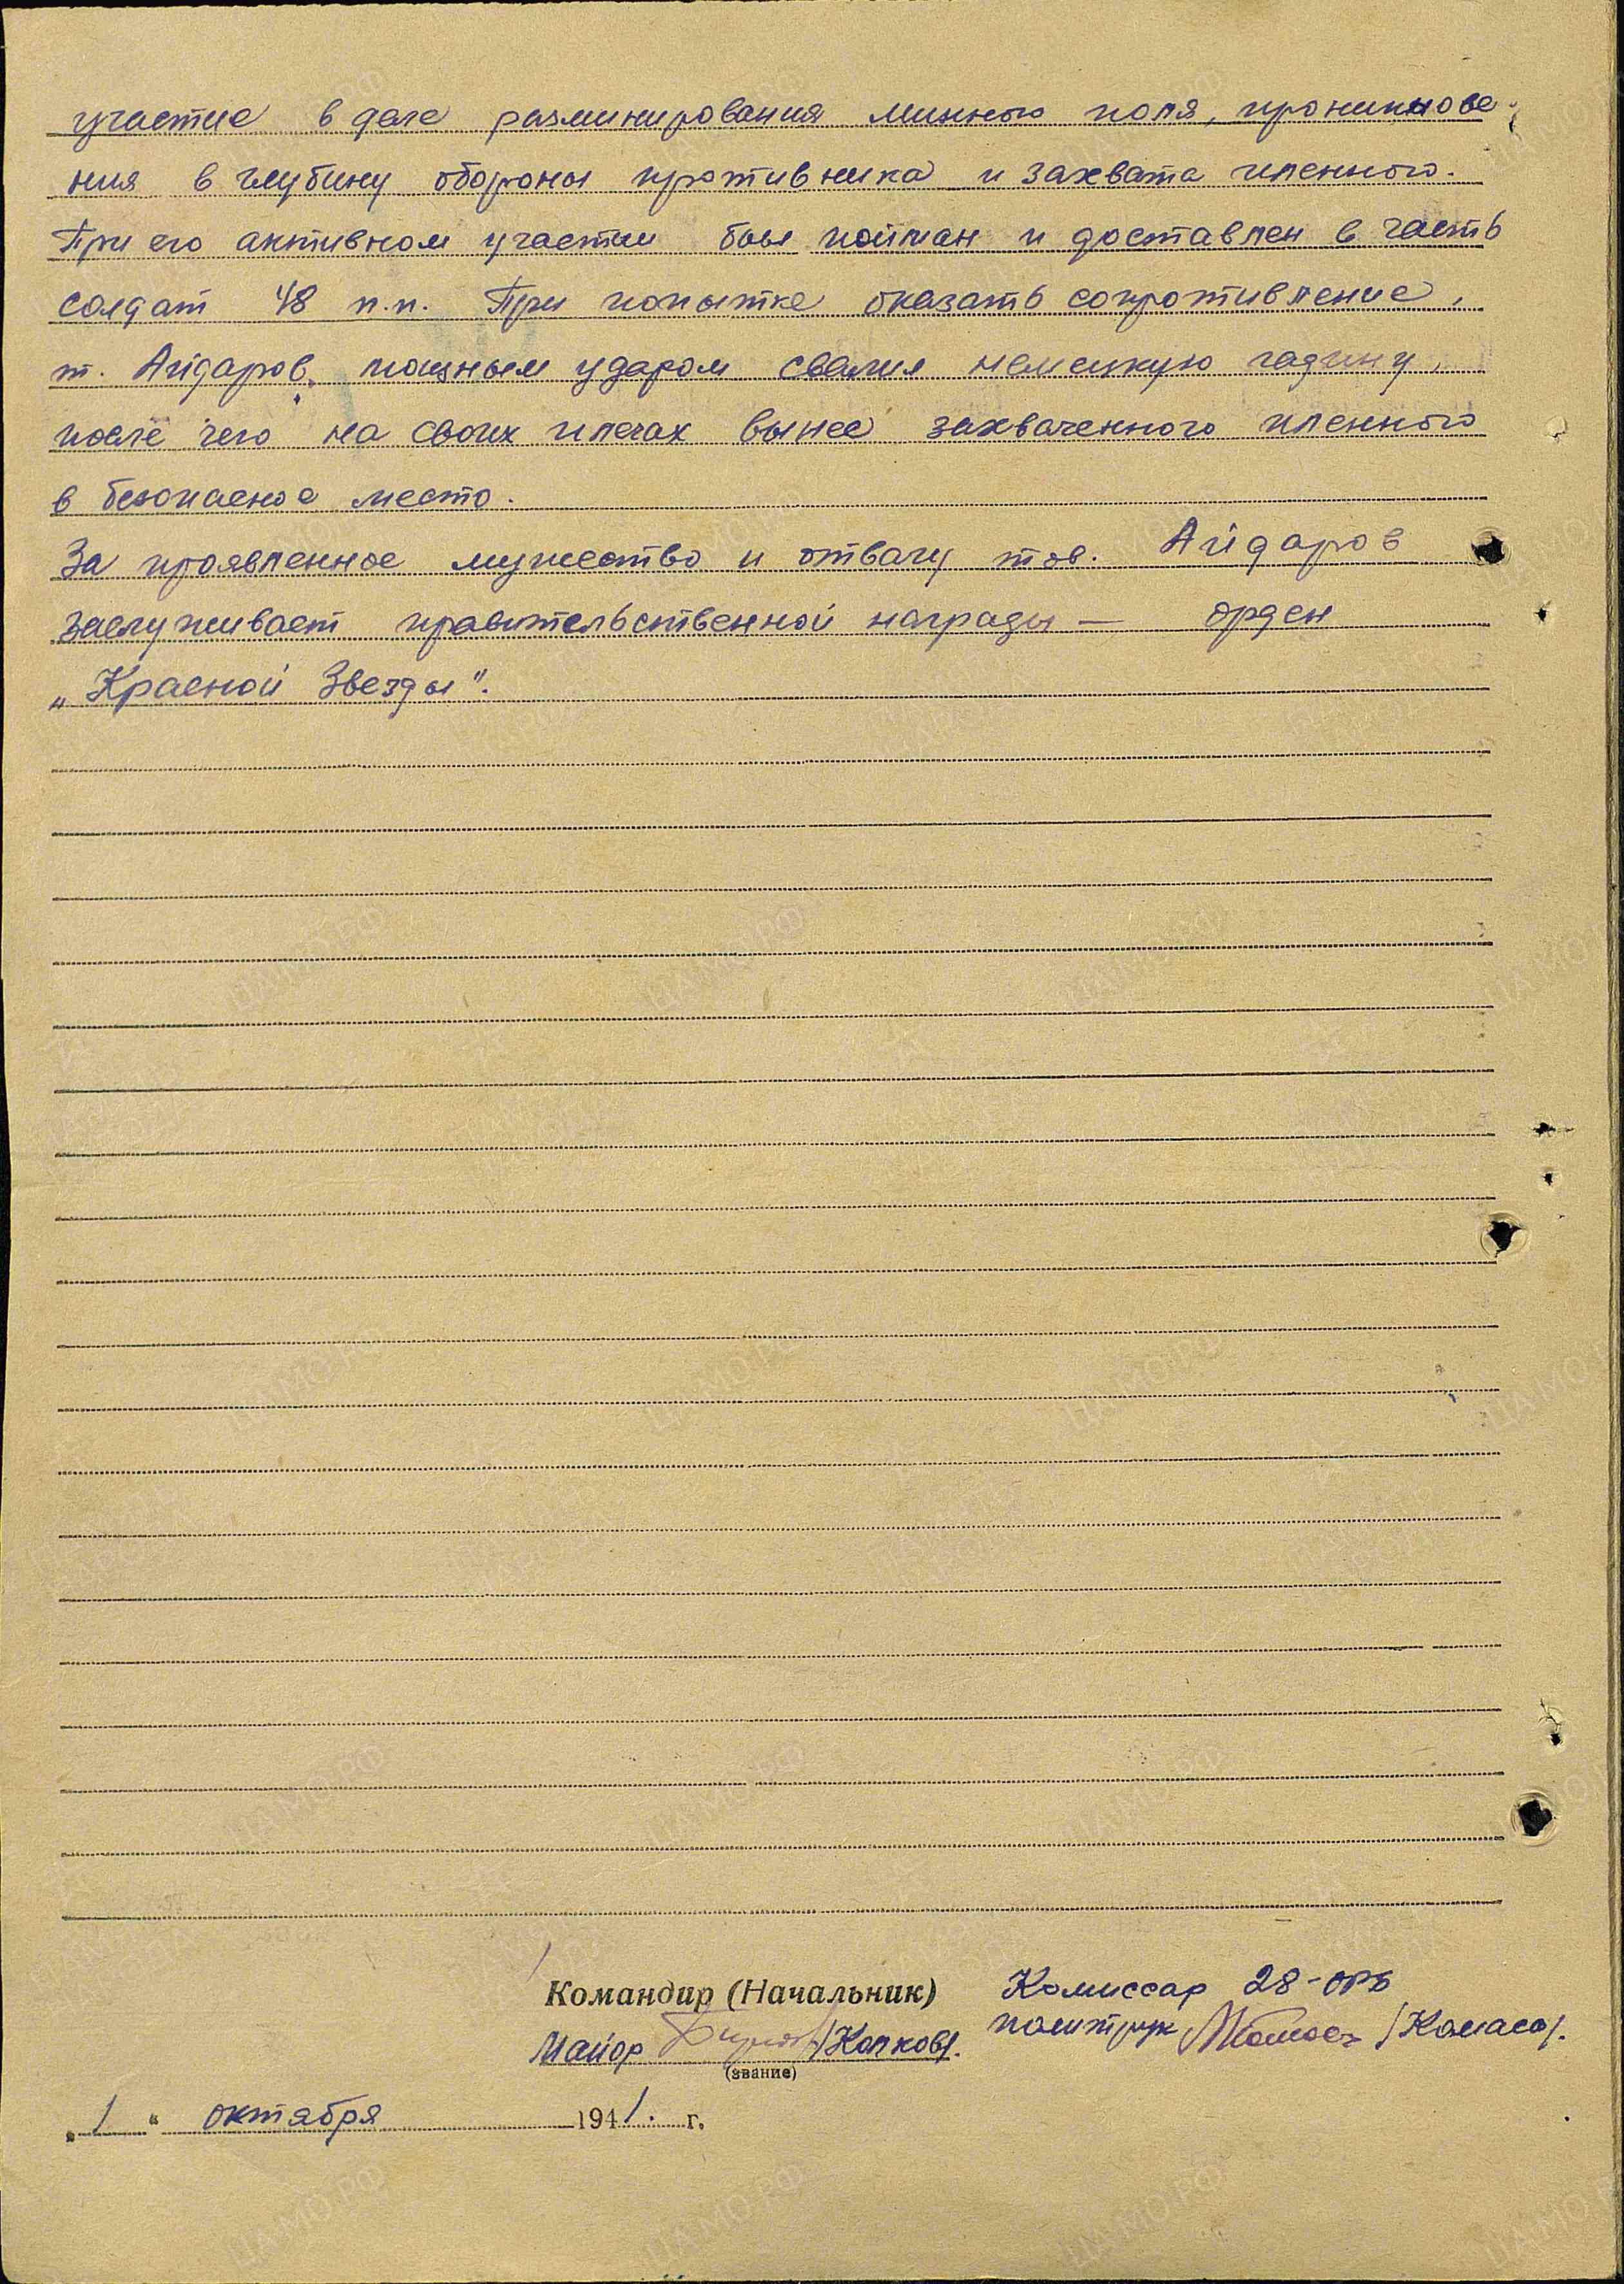 участие в деле разминирования минного поля, проникнове-
ния в глубину обороны противника и захвата пленного.
При его активном участии был пойман и доставлен в часть
солдат 48 п.п. При попытке оказать сопротивление,
т. Айдаров, мощным ударом свалил немецкую гадину,
после чего на своих плечах вынес захваченного пленного
в безопасное место.
За проявленное мужество и отвагу тов. Айдаров
заслуживает правительственной награды — орден
„Красной Звезды".
Командир (Начальник) Комиссар 28-ОРБ
Майор /Копков/. политрук /Комаса/.
(звание)
„1" октября 1941. г.
ЦАМО.РФ